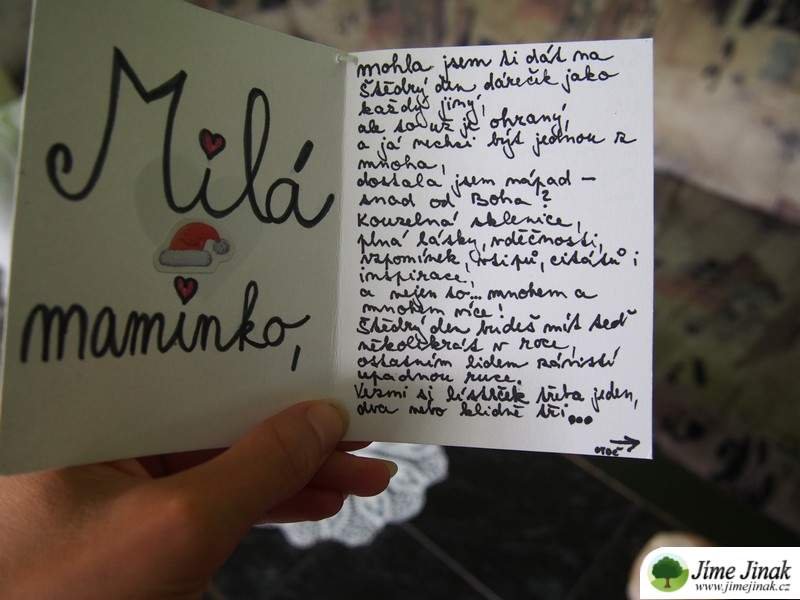 Milá
maminko,
mohla jsem ti dát na
Štědrý den dáreček jako
každý jiný,
ale to už je ohraný,
a já nechci být jednou z
mnoha,
dostala jsem nápad –
snad od Boha?
Kouzelná sklenice,
plná lásky, vděčnosti,
vzpomínek, vtipů, citátů i
inspirace,
a nejen to... mnohem a
mnohem více!
Štědrý den budeš mít teď
několikrát v roce,
ostatním lidem závistí
upadnou ruce.
Vezmi si lísteček třeba jeden,
dva nebo klidně tři...
→
otoč
Jíme Jinak
www.jimejinak.cz